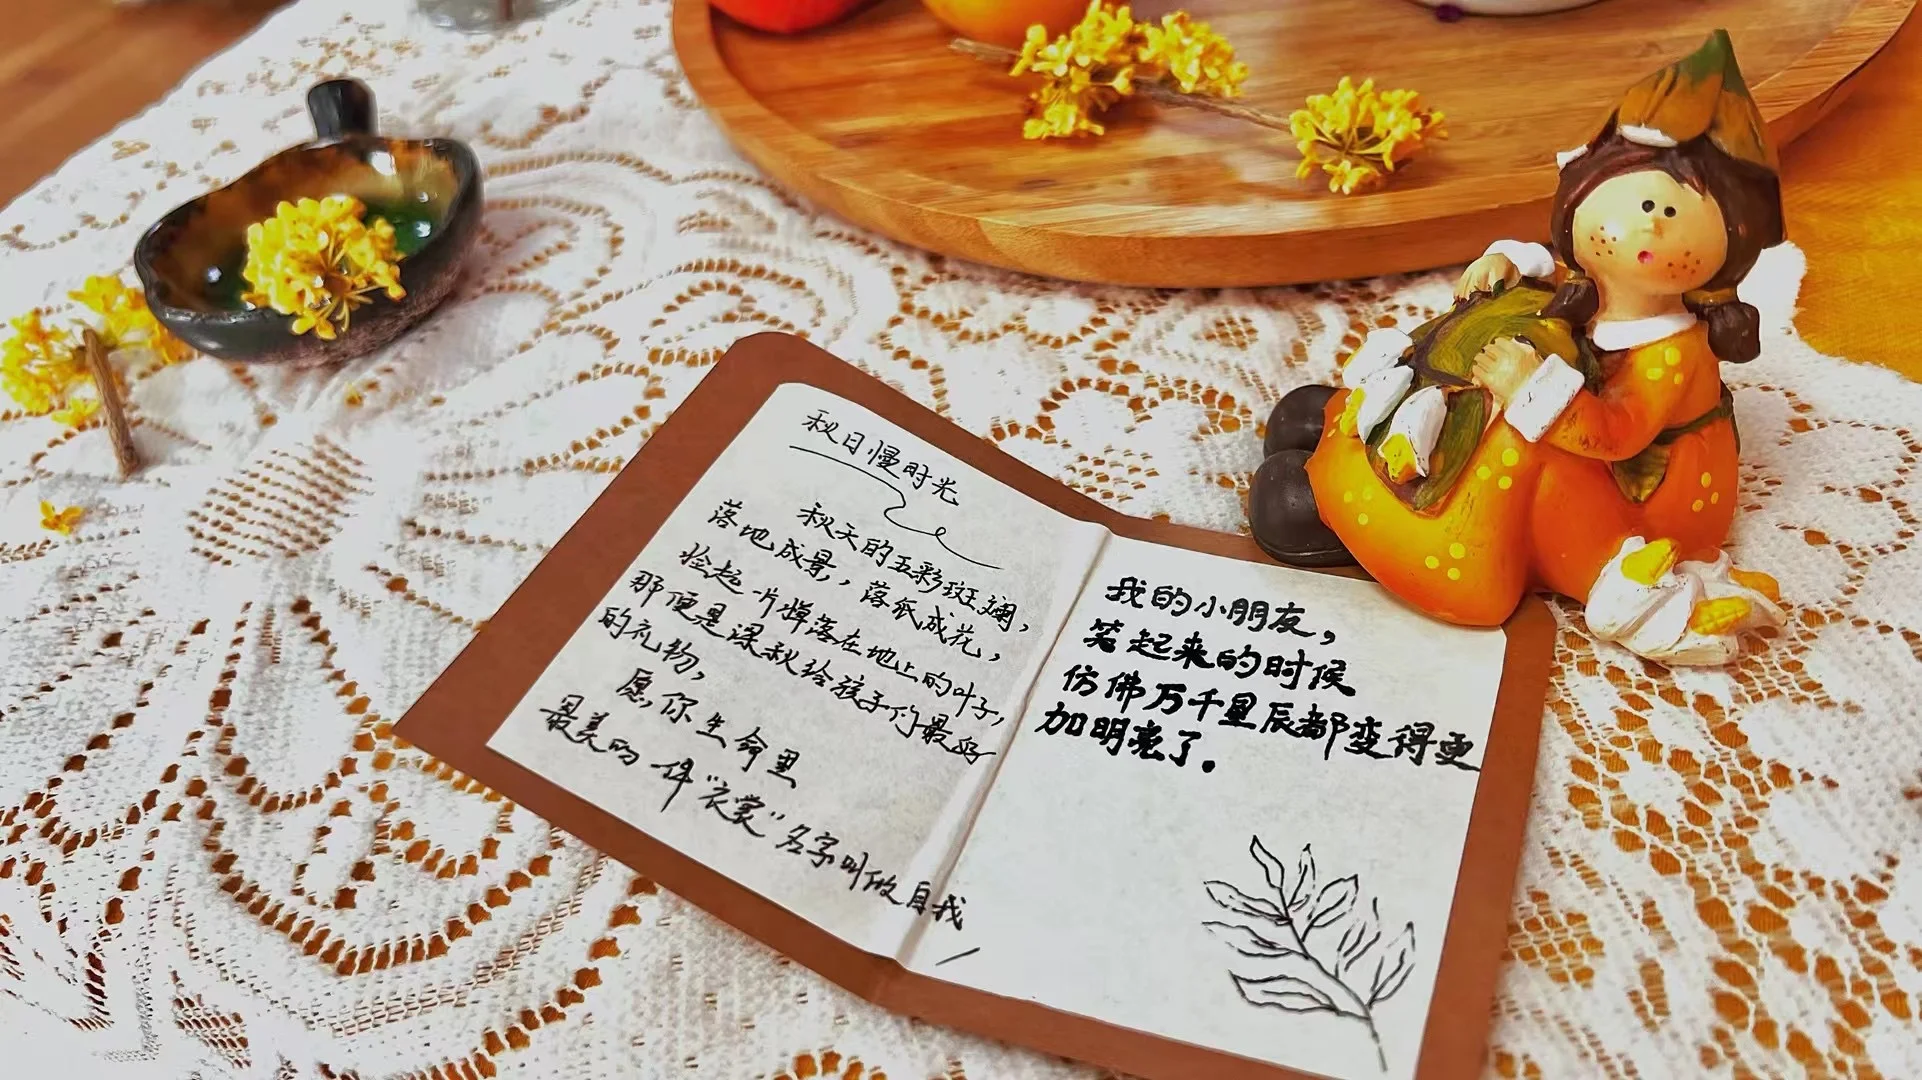 秋日慢时光
秋天的五彩斑斓,
落地成景,落纸成花,
捡起一片掉落在地上的叶子,
那便是深秋给孩子们最好
的礼物,
愿你生命里
最美的一件“衣裳”名字叫做自我
我的小朋友,
笑起来的时候
仿佛万千星辰都变得更
加明亮了。